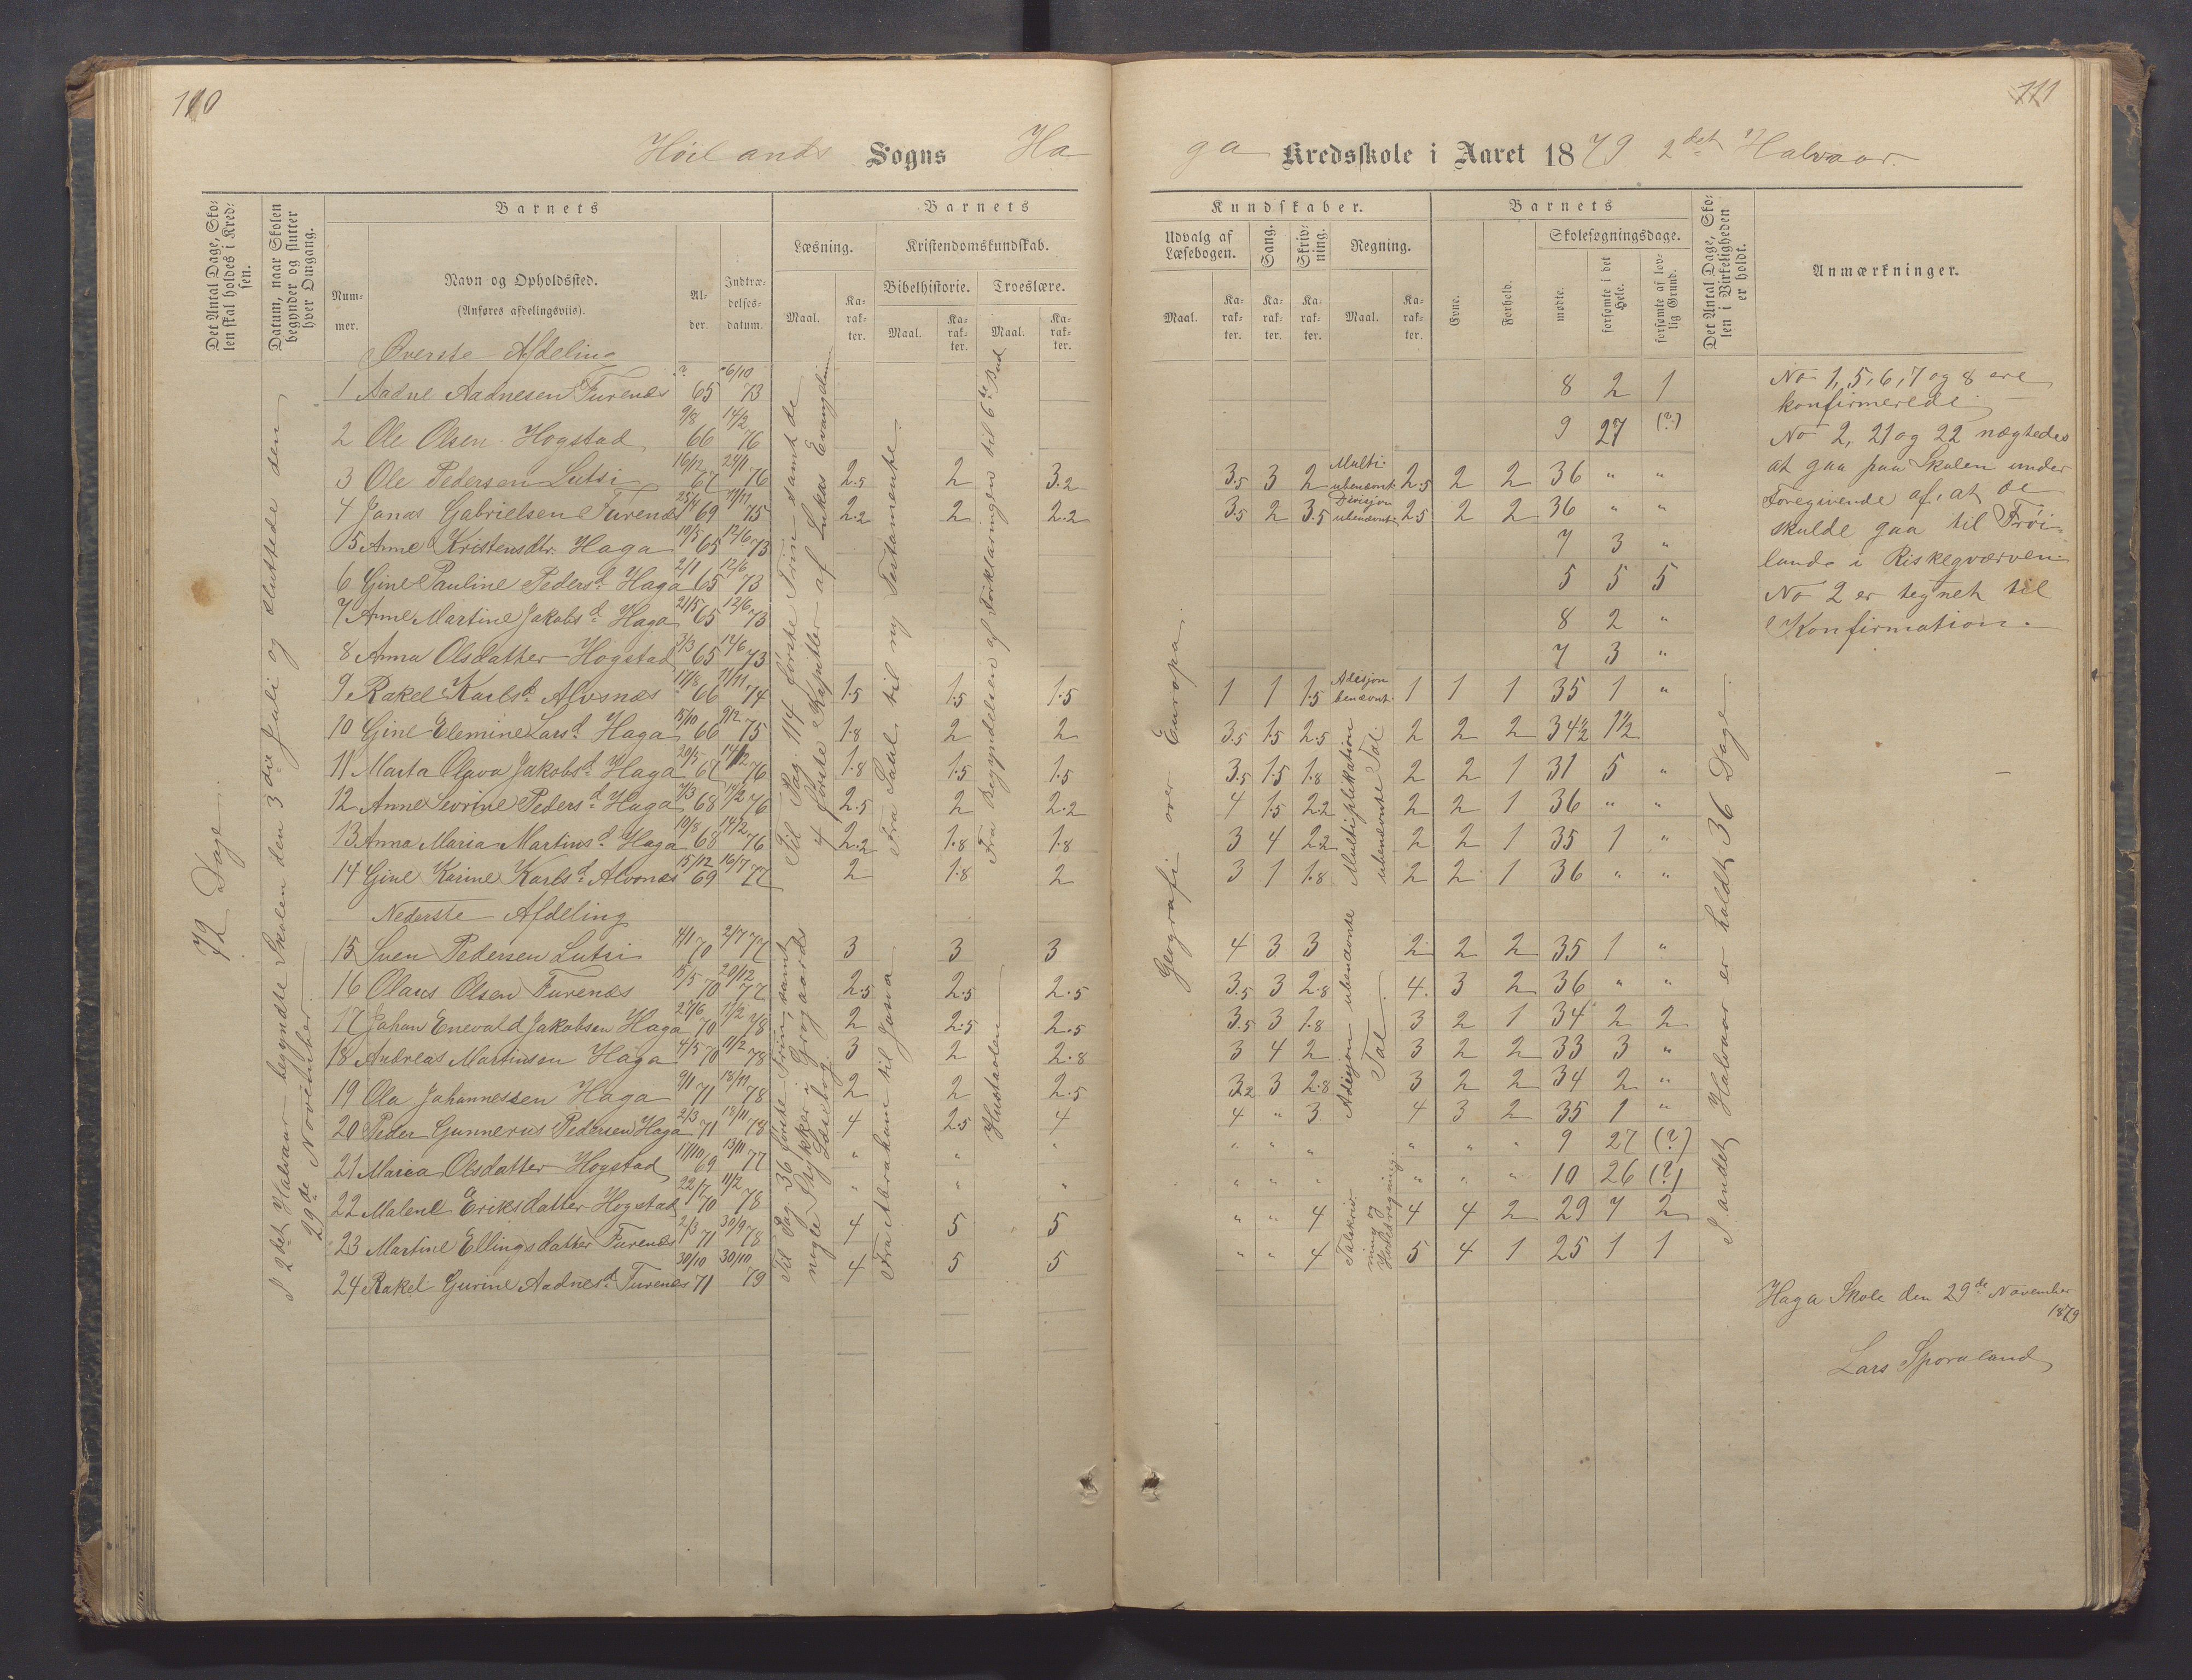 110
111
Höilands Sogns Ha
ga Kredsskole i Aaret 1879 2det Halvaar.
Det Antal Dage, Skolen skal holdes i Kredsen.
Datum, naar Skolen begynder og slutter hver Omgang.
Barnets
Nummer.
Navn og Opholdssted.
(Anføres afdelingsviis).
Alder.
Indtrædelsesdatum.
Barnets
Læsning.
Maal.
Karakter.
Kristendomskundskab.
Bibelhistorie.
Maal.
Karakter.
Troeslære.
Maal.
Karakter.
Kundskaber.
Udvalg af Læsebogen.
Maal.
Karakter.
Sang.
Karakter.
Skrivning.
Karakter.
Regning.
Maal.
Karakter.
Barnets
Evne.
Forhold.
Skolesøgningsdage.
mødte.
forsømte i det Hele.
forsømte af lovlig Grund.
Det Antal Dage, Skolen i Virkeligheden er holdt.
Anmærkninger.
72 Dage.
I 2det Halvaar begyndte Skolen den 3die Juli og sluttede den
29de November.
Øverste Afdeling
1 Aadne Aadnesen Furenes ? 65 6/10 73 8 2 1
2 Ole Olsen Hogstad 9/8 66 14/2 76 9 27 (?)
3 Ole Pedersen Lutsi 16/12 67 24/1 76 2.5 2 3.2 3.5 3 2 Multi: ubenævnt. 2.5 2 2 36 " "
4 Jonas Gabrielsen Furenes 25/4 69 11/11 75 2.2 2 2.2 3.5 2 3.5 Divisjon ubenævnt. 2.5 2 2 36 " "
5 Anne Kristensdtr. Haga 10/5 65 12/6 73 7 3 "
6 Gine Pauline Pedersd. Haga 2/1 65 12/6 73 5 5 5
7 Anne Martine Jakobsd. Haga 21/5 65 12/6 73 8 2 "
8 Anna Olsdatter Hogstad 3/3 65 12/6 73 7 3 "
9 Rakel Karlsd. Alvsnæs 17/8 66 11/11 74 1.5 1.5 1.5 1 1 1.5 Adisjon benævnt. 1 1 1 35 1 "
10 Gine Elemine Larsd. Haga 15/10 66 9/12 75 1.8 2 2 3.5 1.5 2.5 2 2 2 34½ 1½
11 Marta Olava Jakobsd. Haga 20/5 67 14/2 76 1.8 1.5 1.5 3.5 1.5 1.8 2 2 1 31 5 "
12 Anne Sevrine Pedersd. Haga 7/3 68 14/2 76 2.5 2 2.2 4 1.5 2.2 2 2 1 36 " "
13 Anna Maria Martinsd. Haga 10/8 68 14/2 76 2.2 1.8 1.8 3 4 2.2 2 2 1 35 1 "
14 Gine Karine Karlsd. Alvsnæs 15/12 69 16/7 77 2 1.8 2 3 1 1.8 2 2 1 36 " "
Nederste Afdeling
15 Sven Pedersen Lutsi 4/1 70 2/7 77 3 3 3 4 3 3 2 2 2 35 1 "
16 Olaus Olsen Furenæs 15/5 70 20/12 77 2.5 2.5 2.5 3.5 3 2.8 4. 3 2 36 " "
17 Johan Enevald Jakobsen Haga 27/6 70 11/2 78 2 2.5 2.5 3.5 3 1.8 3 2 1 34 2 2
18 Andreas Martinsen Haga 4/5 70 11/2 78 3 2 2.8 3 4 2 3 2 2 33 3 "
19 Ola Johannessen Haga 9/1 71 18/11 78 2 2 2.5 3.2 3 2.8 3 2 2 34 2 "
20 Peder Gunnerus Pedersen Haga 2/3 71 18/11 78 4 2.5 4 4 " 3 4 3 2 35 1 "
21 Maria Olsdatter Hogstad 17/10 69 13/11 77 " " " " " " " " " 9 27 (?)
22 Malene Eriksdatter Hogstad 22/7 70 11/2 78 " " " " " " " " " 10 26 (?)
23 Martine Ellingsdatter Furenes 2/3 71 30/9 78 4 5 5 " " 4 4 4 2 29 7 2
24 Rakel Gurine Aadnesd. Furenes 30/10 71 30/10 79 4 5 5 " " 4 5 4 1 25 1 1
Til Pag. 114 første Trin samt de
4 første Kapitler af Lukas Evangelium
Fra Saul til ny Testamente.
Fra Begyndelsen af Forklaringen til 6te Bud
Til Pag 36 første Trin, samt
nogle Stykker i Grogaards
Læsebog.
Fra Abraham til Josva
Hustavlen
Geografi over Europa.
Multiplikation
ubenævnte Tal
Adisjon ubenævnte
Tal.
Talskrivning og
Hovedregning.
I andet Halvaar er holdt 36 Dage.
No 1, 5, 6, 7 og 8 ere
konfirmerede.
No 2, 21 og 22 nægtedes
at gaa paa Skolen under
Foregivende af, at de
skulde gaa til Frøi-
land i Riskekværven.
No 2 er tegnet til
Konfirmation.
Haga Skole den 29de November
1879
Lars Sporaland